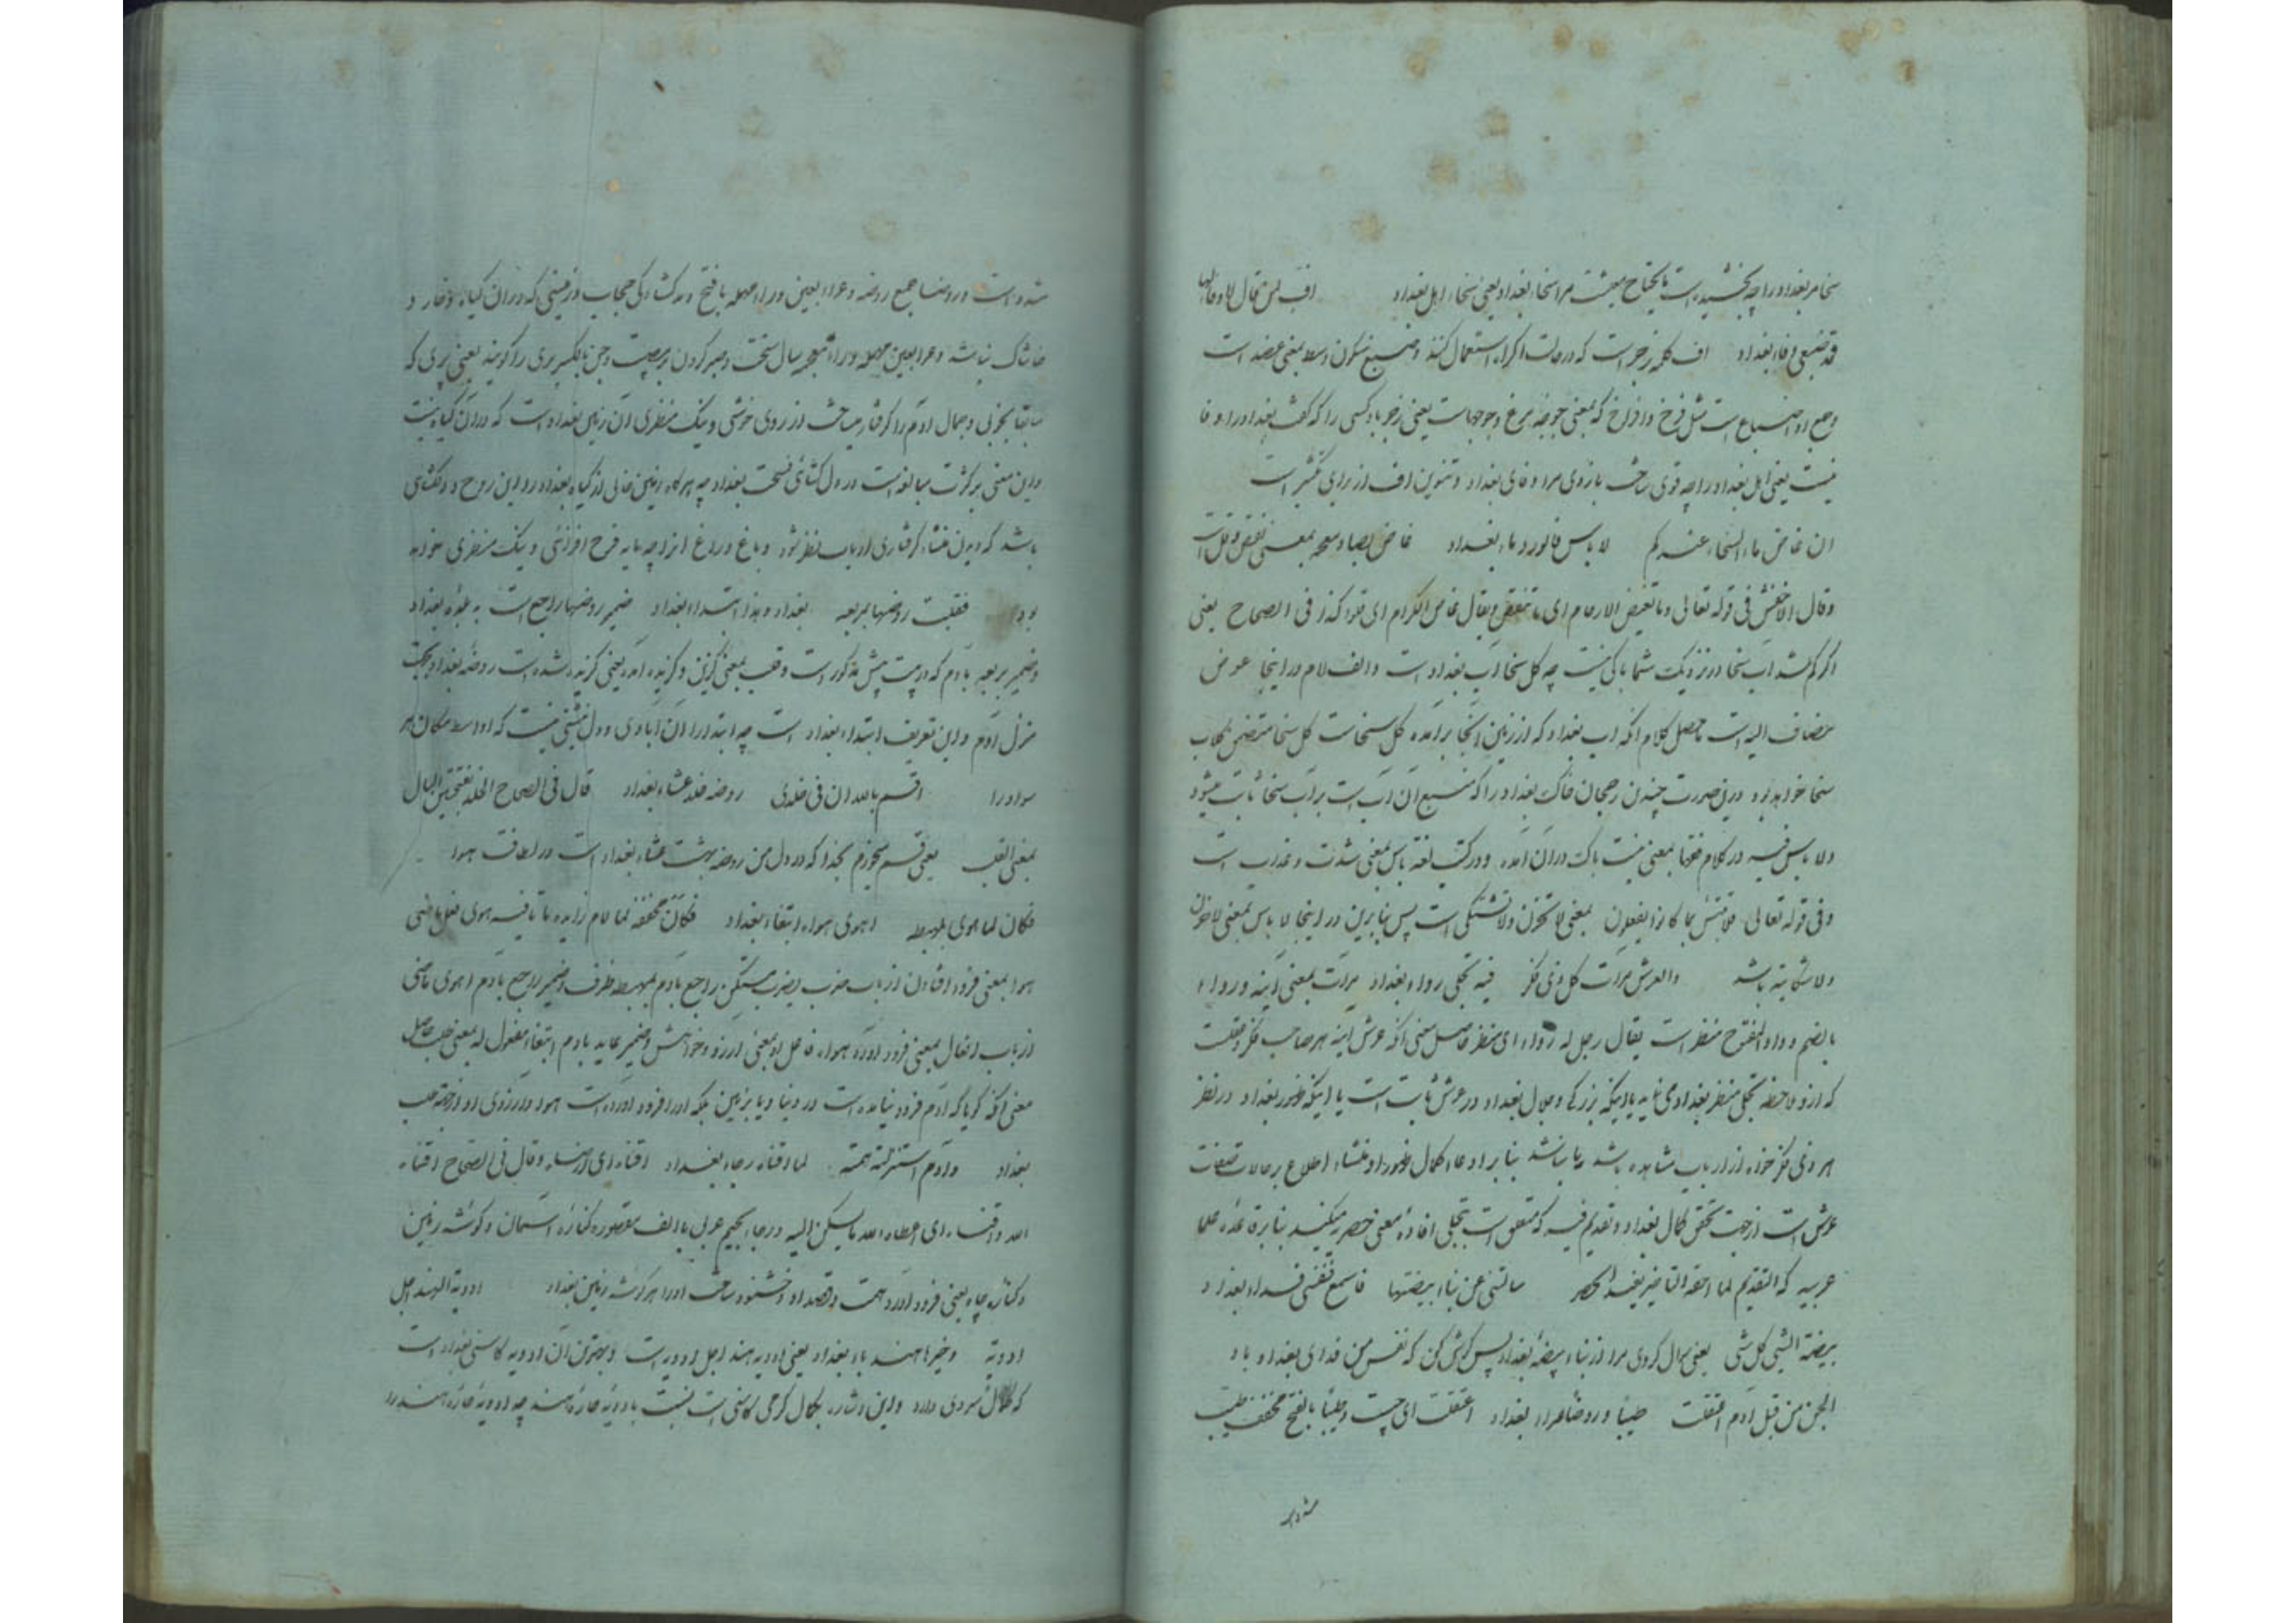 سخا مر بغداد را چه بخشیده است تا یحتاج مر اسخاء بغداد یعنی سخاء اهل بغداد اف لمن قال لا وفا لها
قد ضبعی وفاء بغداد اف کلمه زجر است که در حالت اکراه استعمال کنند و ضبع بسکون وسط بمعنی عضد است
و جمع او اضباع است مثل فرخ و افراخ که بمعنی جوجه مرغ و جوجهاست یعنی زجر باد کسی را که گفت بغداد را وفا
نیست یعنی اهل بغداد را چه قوی ساخت بازوی مرا وفای بغداد و تنوین اف از برای تکثیر است
ان غاض ماء السخاء عندکم لا باس فالورد ماء بغداد غاض بضاد معجمه بمعنی نقص و قل است
و قال الاخفش فی قوله تعالی و ما تغیض الارحام ای ما تنقص و یقال غاض الکرام ای قلوا کذا فی الصحاح یعنی
اگر کم شد آب سخا در نزدیک شما باکی نیست چه گل سخا آب بغداد است و الف لام در اینجا عوض
مضاف الیه است حاصل کلام آنکه آب بغداد که از زمین آنجا برآمده گل سخاست گل سخا متضمن گلاب
سخا خواهد بود درین صورت چندین رجحان خاک بغداد را که منبع آن آب است بر آب سخا ثابت میشود
و لا باس فیه در کلام فقها بمعنی نیست باک در آن آمده و در کتب لغة باس بمعنی شدت و عذاب است
و فی قوله تعالی فلا تبتئس بما کانوا یفعلون بمعنی لا تحزن و لا تشتکی است پس بنابرین در اینجا لا باس بمعنی لا حزن
و لا شکایة باشد والعرش مرآت کل ذی فکر فیه تجلی رواء بغداد مرآت بمعنی آینه و رواء
بالضم و واو المفتوح منظر است یقال رجل له رواء ای منظر حاصل معنی آنکه عرش آینه هر صاحب فکر و عقلست
که ازو ملاحظه تجلی منظر بغداد می نماید یا دیگه بزرگی و جلال بغداد در عرش ثابت است یا اینکه ظهور بغداد در نظر
هر ذی فکر خواه از ارباب مشاهده باشد یا نباشد بنا بر ادعاء کمال ظهور او منشاء اطلاع بر حالات و صفات
عرش است از جهت تحقق کمال بغداد و تقدیم فیه که متعلق است بتجلی افاده معنی حصر میکند بنا بر قاعده علما
عربیه که التقدیم لما حقه التاخیر یفید الحصر سالتنی عن بناء بیضتها فاسمع فنفسی فداء بغداد
بیضة الشیء کل شی یعنی سوال کردی مرا از بناء بیضه بغداد پس گوش کن که نفس من فدای بغداد باد
الجن من قبل آدم اعتقلت طیبا و روضا عراء بغداد اعتقلت ای حبست و طیبا بالفتح مخفف طیب
شده است
شده است و روضا جمع روضه و عراء بعین و راء مهمله بافتح و مد گشادگی بی حجاب و زمینی که در آن گیاه و خار و
خاشاک نباشد و عزا بعین مهمله و زاء معجمه سال سخت و صبر کردن بر مصیبت و جن بالکسر پری را گویند یعنی پری که
سابقا بخوبی و جمال آدم را گرفتار ساخت از روی خوشی و نیک منظری آن زمین بغداد است که در آن گیاه نیست
و این معنی بر کثرت مبالغه است در دل گشائی فسحت بغداد چه هرگاه زمین خالی از گیاه بغداد را این روح و دلگشای
باشد که دیدن منشاء گرفتاری ارباب نظر شود و باغ و راغ او را چه پایه فرح افزائی و نیک منظری خواهد
بود فقلبت روضها بمربعه بغداد و هذا ابتداء بغداد ضمیر روضها راجع است به بلده بغداد
و ضمیر مربعه بآدم که در بیت پیش مذکور است
منزل آدم و این تعریف ابتداء بغداد است چه ابتدا را آن آبادی و دل نشینی نیست که اواسط مکان هر
سواد را اقسم بالله ان فی خلدی روضه خلد عشاء بغداد قال فی الصحاح الخلد بفتحتین البال
بمعنی القلب یعنی قسم میخورم بخدا که در دل من روضه بهشت عشاء بغداد است در لطافت هوا
فکان لما هوی بمهبطه اهوی هواه ابتغاء بغداد فکان مخففه لما لام زایده ما نافیه هوی فعل ماضی
هوا بمعنی فرود افتادن از باب ضرب یضرب مستکن راجع بآدم بمهبطه ظرف و ضمیر راجع بآدم اهوی ماضی
از باب افعال بمعنی فرود آورد هواه فاعل او بمعنی آرزو و خواهش و ضمیر عاید بآدم ابتغاء مفعول له بمعنی طلب حاصل
معنی آنکه گویا که آدم فرود نیامده است در دنیا و یا بزمین بلکه او را فرود آورده است هوا و آرزوی او از جهة طلب
بغداد و آدم استنزلته همته لما اقناه رجاء بغداد اقناه ای ارضاه و قال فی الصحاح اقناه
الله و اقناه ای اعطاه الله ما یسکن الیه و رجاء بجیم عربی با الف مقصوره کناره آسمان و گوشه زمین
و کناره چاه یعنی فرود آورد همت و قصد او و خشنود ساخت او را هر گوشه زمین بغداد ادویة الهند اجل
ادویة و خیرها هندباء بغداد یعنی ادویه هند اجل ادویه است و بهترین آن ادویه کاسنی بغداد است
که کمال سردی دارد و این اشاره بکمال گرمی کاسنی است نسبت بادویه حاره هند چه ادویه حاره هند را